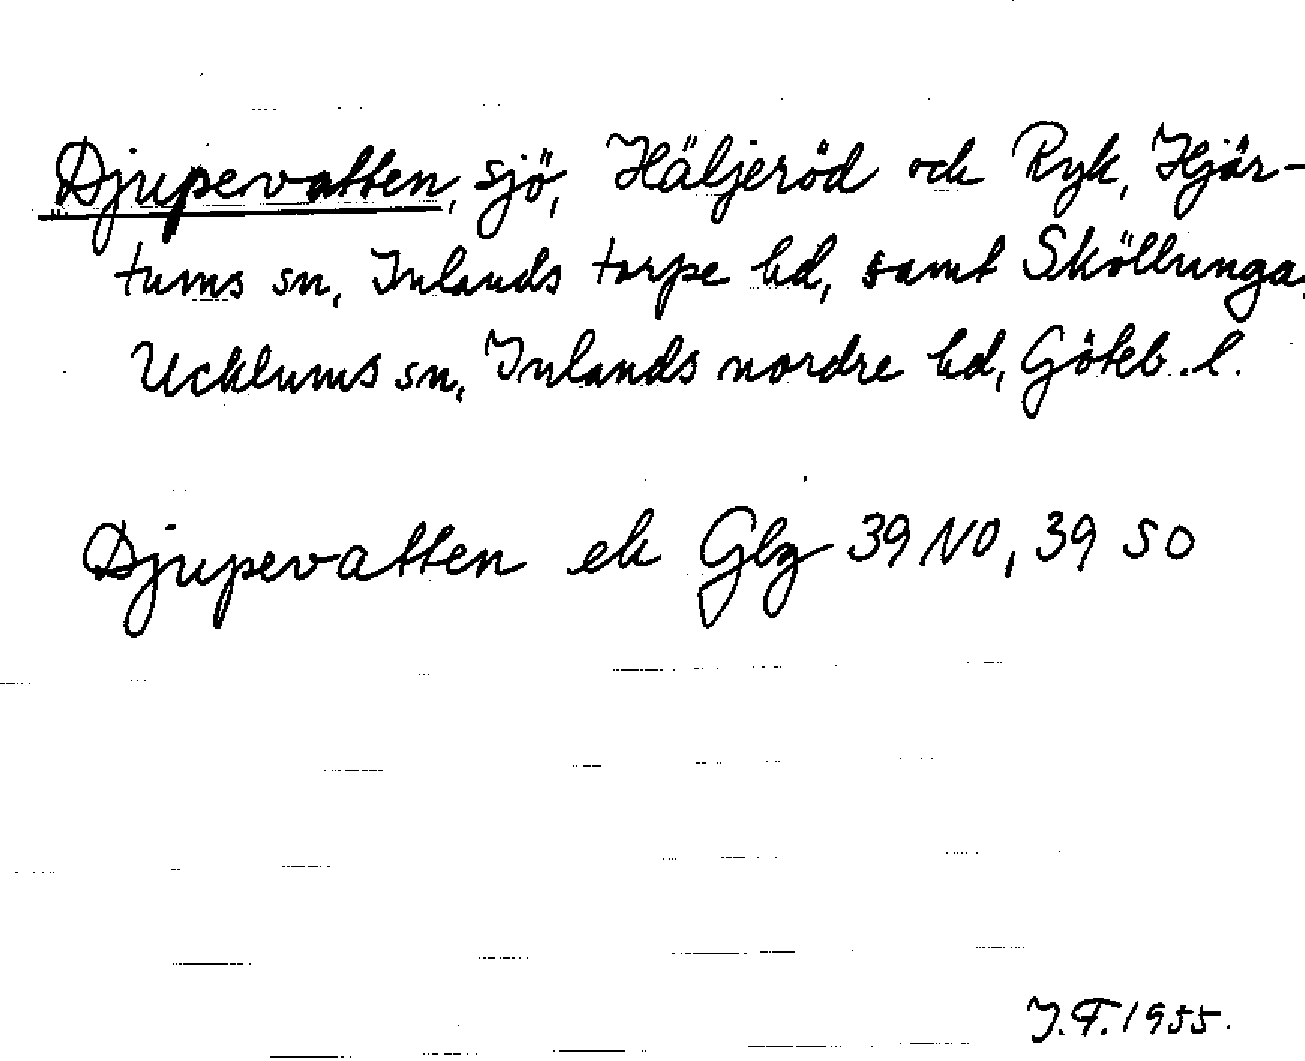 Djupevatten, sjö, Häljeröd och Ryk, Hjär-
tums sn, Inlands torpe hd, samt Sköllunga,
Ucklums sn, Inlands nordre hd, Göteb. l.
Djupevatten ek Gbg 39 NO, 39 SO
J.F. 1955.